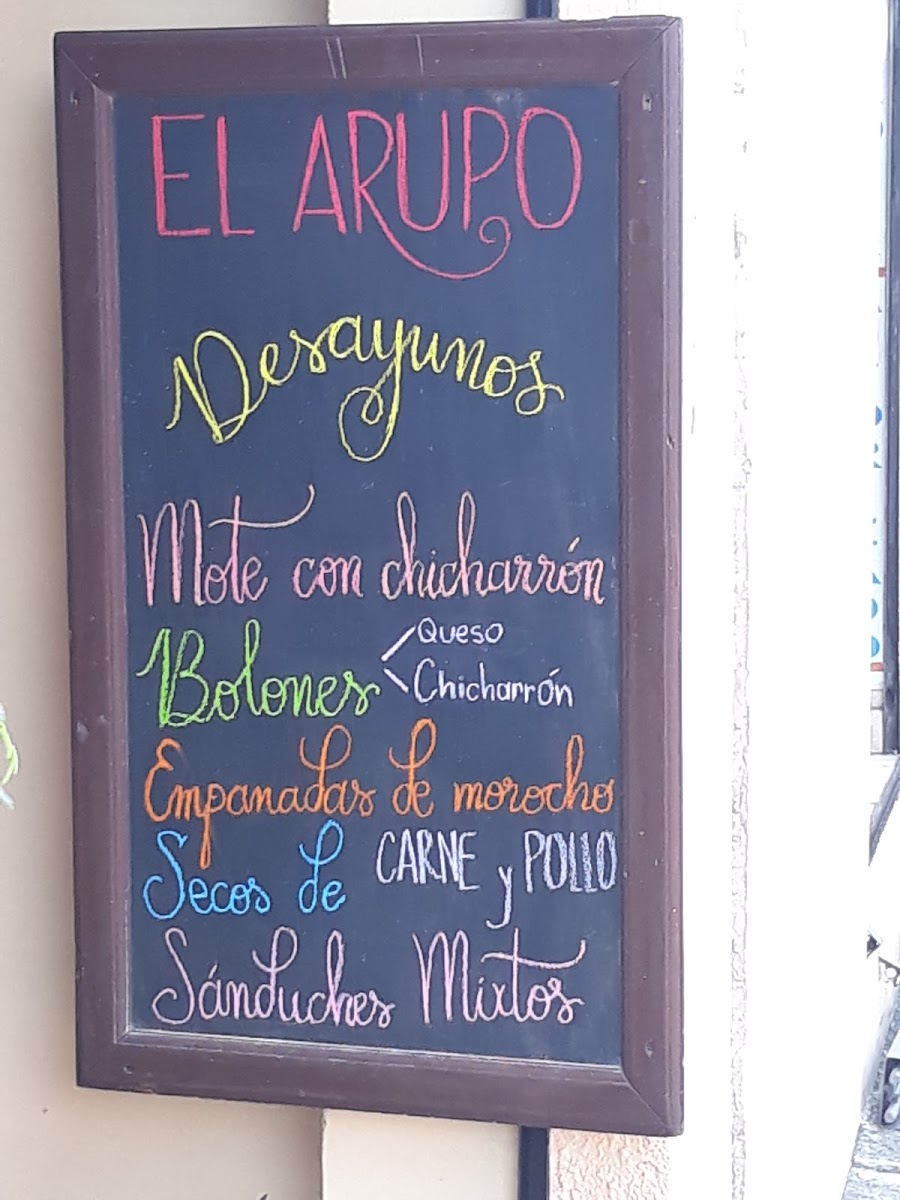 EL ARUPO
Desayunos
Mote con chicharrón
Bolones Queso
Chicharrón
Empanadas de morocho
Secos de CARNE y POLLO
Sánduches Mixtos